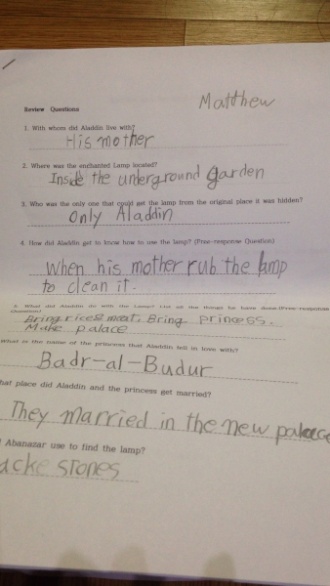 Matthew
Review Questions
1. With whom did Aladdin live with?
His mother
2. Where was the enchanted Lamp located?
Inside the underground garden
3. Who was the only one that could get the lamp from the original place it was hidden?
Only Aladdin
4. How did Aladdin get to know how to use the lamp? (Free-response Question)
When his mother rub the lamp
to clean it.
5. What did Aladdin do with the Lamp? List all the things he have done.(Free-response
Bring rice&meat. Bring princess.
Make palace
What is the name of the princess that Aladdin fell in love with?
Badr-al-Budur
hat place did Aladdin and the princess get married?
They married in the new palace
Abanazar use to find the lamp?
acke stones